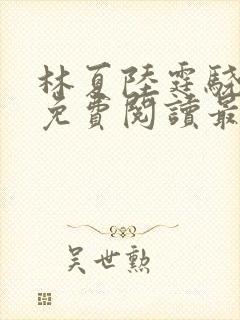 林夏陸霆驍
免費閱讀最
吴世勲